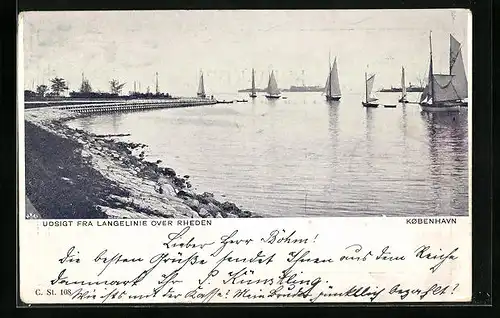 UDSIGT FRA LANGELINIE OVER RHEDEN
KØBENHAVN
Lieber Herr Böhm!
die besten Grüße sendet Ihnen aus dem Reiche
Danmark Ihr P. Künstling
C. St. 108
Wie ists mit der Kasse? Mein Bruder pünktlich bezahlt?